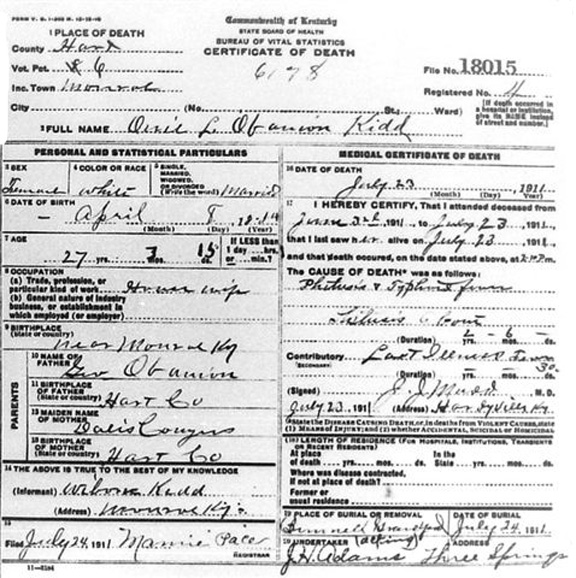 FORM V. S. 1-
Commonwealth of Kentucky
STATE BOARD OF HEALTH
BUREAU OF VITAL STATISTICS
CERTIFICATE OF DEATH
1 PLACE OF DEATH
County Hart
Vot. Pct. # 6
Inc. Town Monroe
City (No. St.; Ward)
6178
File No. 18015
Registered No. 4
[If death occurred in a hospital or institution, give its NAME instead of street and number.]
2 FULL NAME L. Obanion Kidd
PERSONAL AND STATISTICAL PARTICULARS
3 SEX
4 COLOR OR RACE
5 SINGLE, MARRIED, WIDOWED, OR DIVORCED (Write the word)
Female white Married
6 DATE OF BIRTH
April 8
(Month) (Day) (Year)
7 AGE
If LESS than 1 day....hrs. or....min.?
27 yrs. 3 mos. 15 ds.
8 OCCUPATION
(a) Trade, profession, or particular kind of work. House wife
(b) General nature of industry business, or establishment in which employed (or employer)
9 BIRTHPLACE
(State or country) near Monroe Ky
PARENTS
10 NAME OF FATHER
Geo Obanion
11 BIRTHPLACE OF FATHER
(State or country) Hart Co
12 MAIDEN NAME OF MOTHER
13 BIRTHPLACE OF MOTHER
(State or country) Hart Co
14 THE ABOVE IS TRUE TO THE BEST OF MY KNOWLEDGE
(Informant) Kidd
(Address) Monroe Ky.
15
Filed July 24, 1911 Mamie Pace
REGISTRAR
11-5184
MEDICAL CERTIFICATE OF DEATH
16 DATE OF DEATH
July 23, 1911
(Month) (Day) (Year)
17 I HEREBY CERTIFY, That I attended deceased from
June 1911, to July 23 1911,
that I last saw her alive on July 23 1911,
and that death occured, on the date stated above, at 2 P.M.
The CAUSE OF DEATH* was as follows:
Phthisis & Typhoid fever
(Duration) 2 yrs. 6 mos. ds.
Contributory Last Illness
(SECONDARY)
(Duration) yrs. mos. 30 ds.
(Signed) M.D.
July 23, 1911 (Address) Hardyville Ky.
*State the DISEASE CAUSING DEATH, or, in deaths from VIOLENT CAUSES, state (1) MEANS OF INJURY; and (2) whether ACCIDENTAL, SUICIDAL or HOMICIDAL.
18 LENGTH OF RESIDENCE (FOR HOSPITALS, INSTITUTIONS, TRANSIENTS OR RECENT RESIDENTS)
At place of death yrs. mos. ds. In the State yrs. mos. ds.
Where was disease contracted,
if not at place of death?
Former or usual residence
19 PLACE OF BURIAL OR REMOVAL
DATE OF BURIAL
July 24, 1911
20 UNDERTAKER (acting)
ADDRESS
J. H. Adams Three Springs